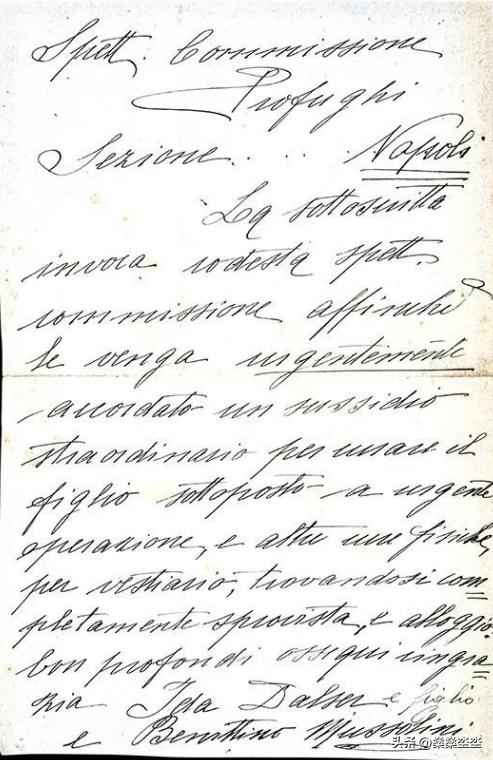 Spett. Commissione
Profughi
Sezione . . . Napoli
La sottoscritta
invoca codesta spett.
commissione affinché
le venga urgentemente
accordato un sussidio
straordinario per curare il
figlio sottoposto a urgente
operazione, e altre cure fisiche,
per vestiario, trovandosi com=
pletamente sprovista, e alloggio.
Con profondi ossequi ringra=
zia Ida Dalser e figlio
e Benittino Mussolini
头条 @燊燊坐坐